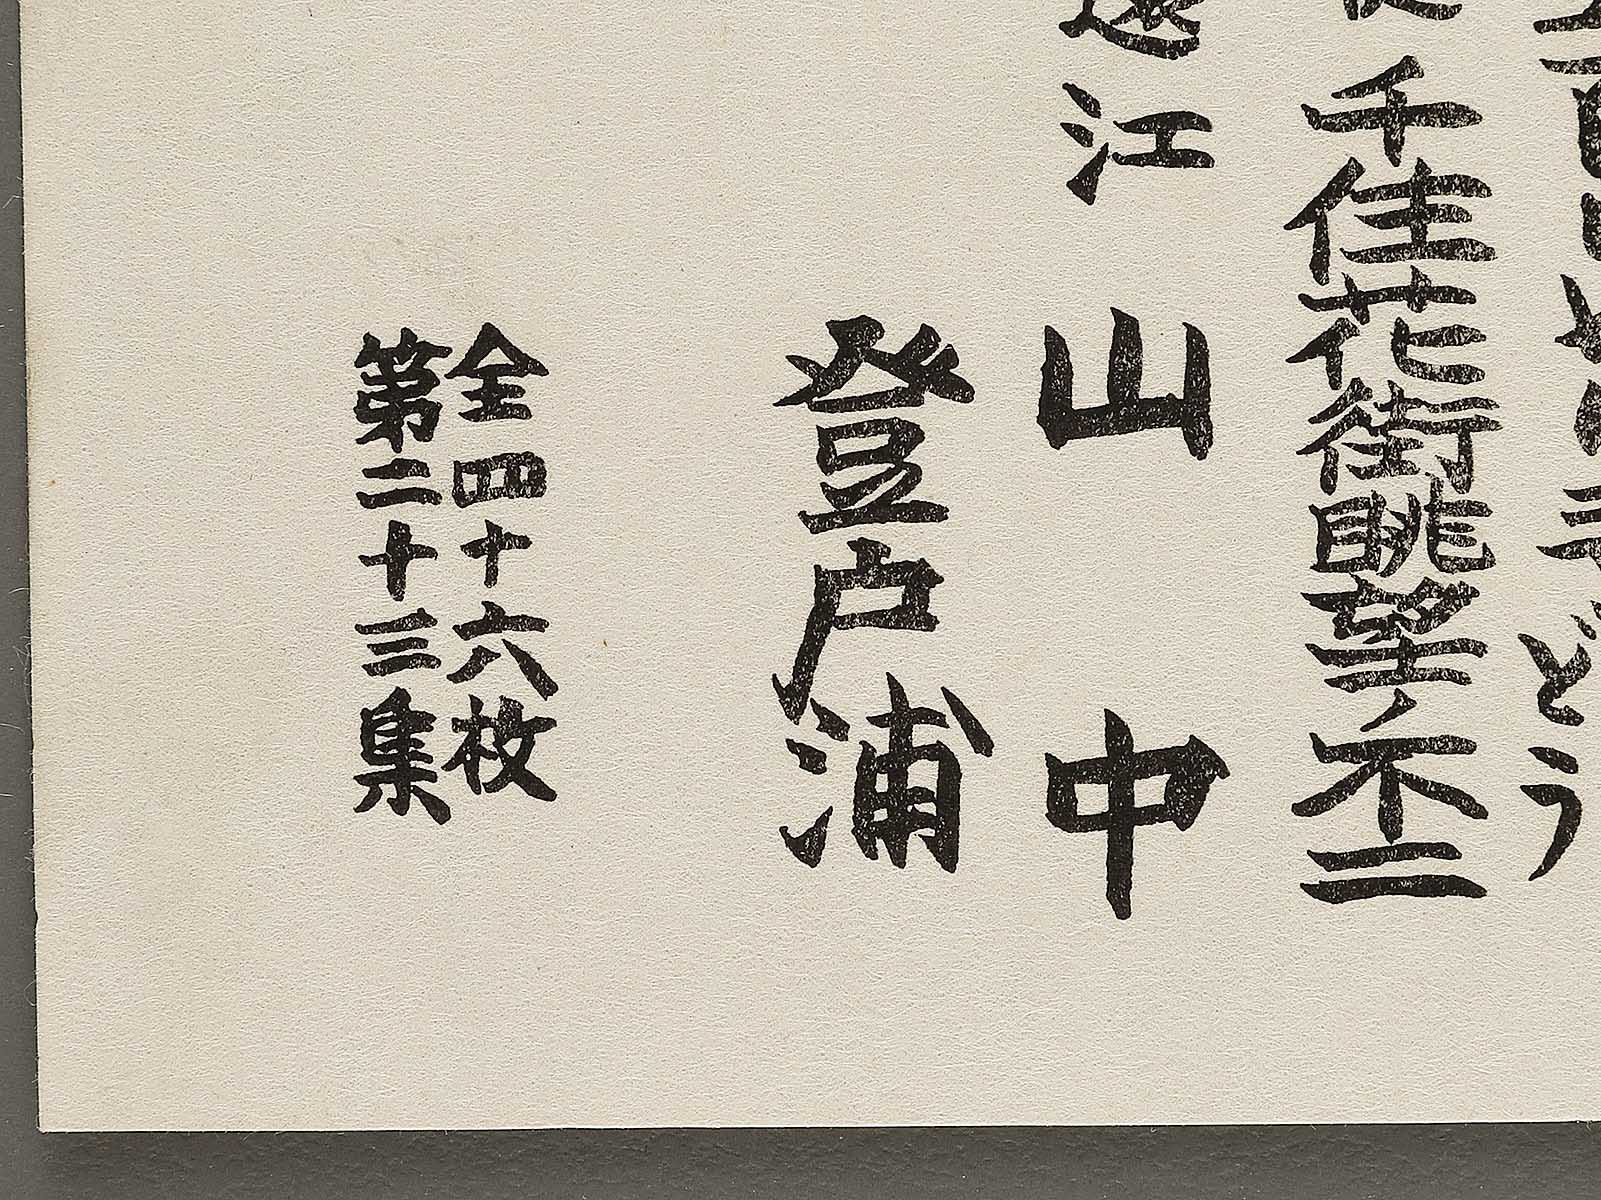 どう
千佳花街眺望ノ不二
江山中
登戸浦
全四十六枚
第二十三集